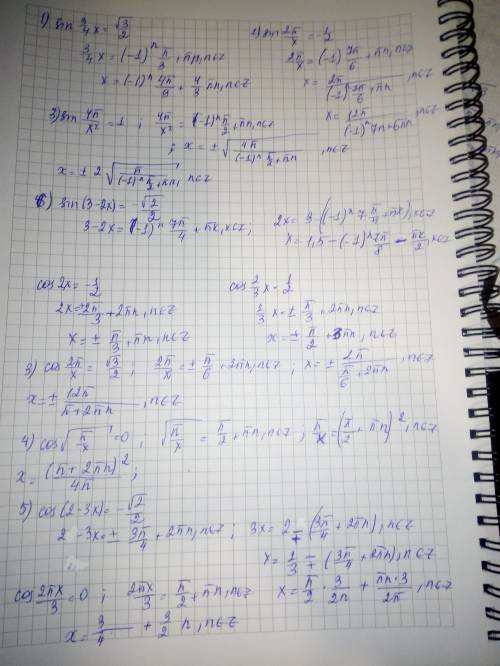 1) sin 3/4 x = √3/2
3/4 x = (-1)^n π/3, πn, n∈Z
x = (-1)^n 4π/9 + 4/3 πn, n∈Z
2) sin 2π/x = -1/2
2π/x = (-1)^n 7π/6 + πn, n∈Z
x = 2π/((-1)^n 7π/6 + πn), n∈Z
x = 12π/((-1)^n 7π + 6πn)
3) sin 4π/x² = 1 ; 4π/x² = (-1)^n π/2 + πn, n∈Z
; x = ± √(4π/((-1)^n π/2 + πn)), n∈Z
x = ± 2 √(π/((-1)^n π/2 + πn)), n∈Z
6) sin(3-2x) = -√2/2
3-2x = (-1)^n 7π/4 + πk, k∈Z ;
2x = 3-((-1)^n 7π/4 + πk), k∈Z
x = 1,5 - (-1)^n 7π/8 - πk/2, k∈Z
cos 2x = -1/2
2x = ± 2π/3 + 2πn, n∈Z
x = ± π/3, πn, n∈Z
cos 2/3 x = 1/2
2/3 x = ± π/3, 2πn, n∈Z
x = ± π/2 + 3πn, n∈Z
3) cos 2π/x = √3/2 ; 2π/x = ± π/6 + 2πn, n∈Z ; x = ± 2π/(π/6, 2πn), n∈Z
x = ± 12π/(π+2πn), n∈Z
4) cos √(π/x) = 0 ; √(π/x) = π/2 + πn, n∈Z ; π/x = (π/2 + πn)², n∈Z
x = (π+2πn)²/4π ;
5) cos(2-3x) = -√2/2
2-3x = ± 3π/4 + 2πn, n∈Z ; 3x = 2 ∓ (3π/4 + 2πn), n∈Z
x = 2/3 ∓ (3π/4 + 2πn), n∈Z
cos 2πx/3 = 0 ; 2πx/3 = π/2 + πn, n∈Z ; x = π/2 · 3/2π + πn·3/2π, n∈Z
x = 3/4 + 3/2 n, n∈Z